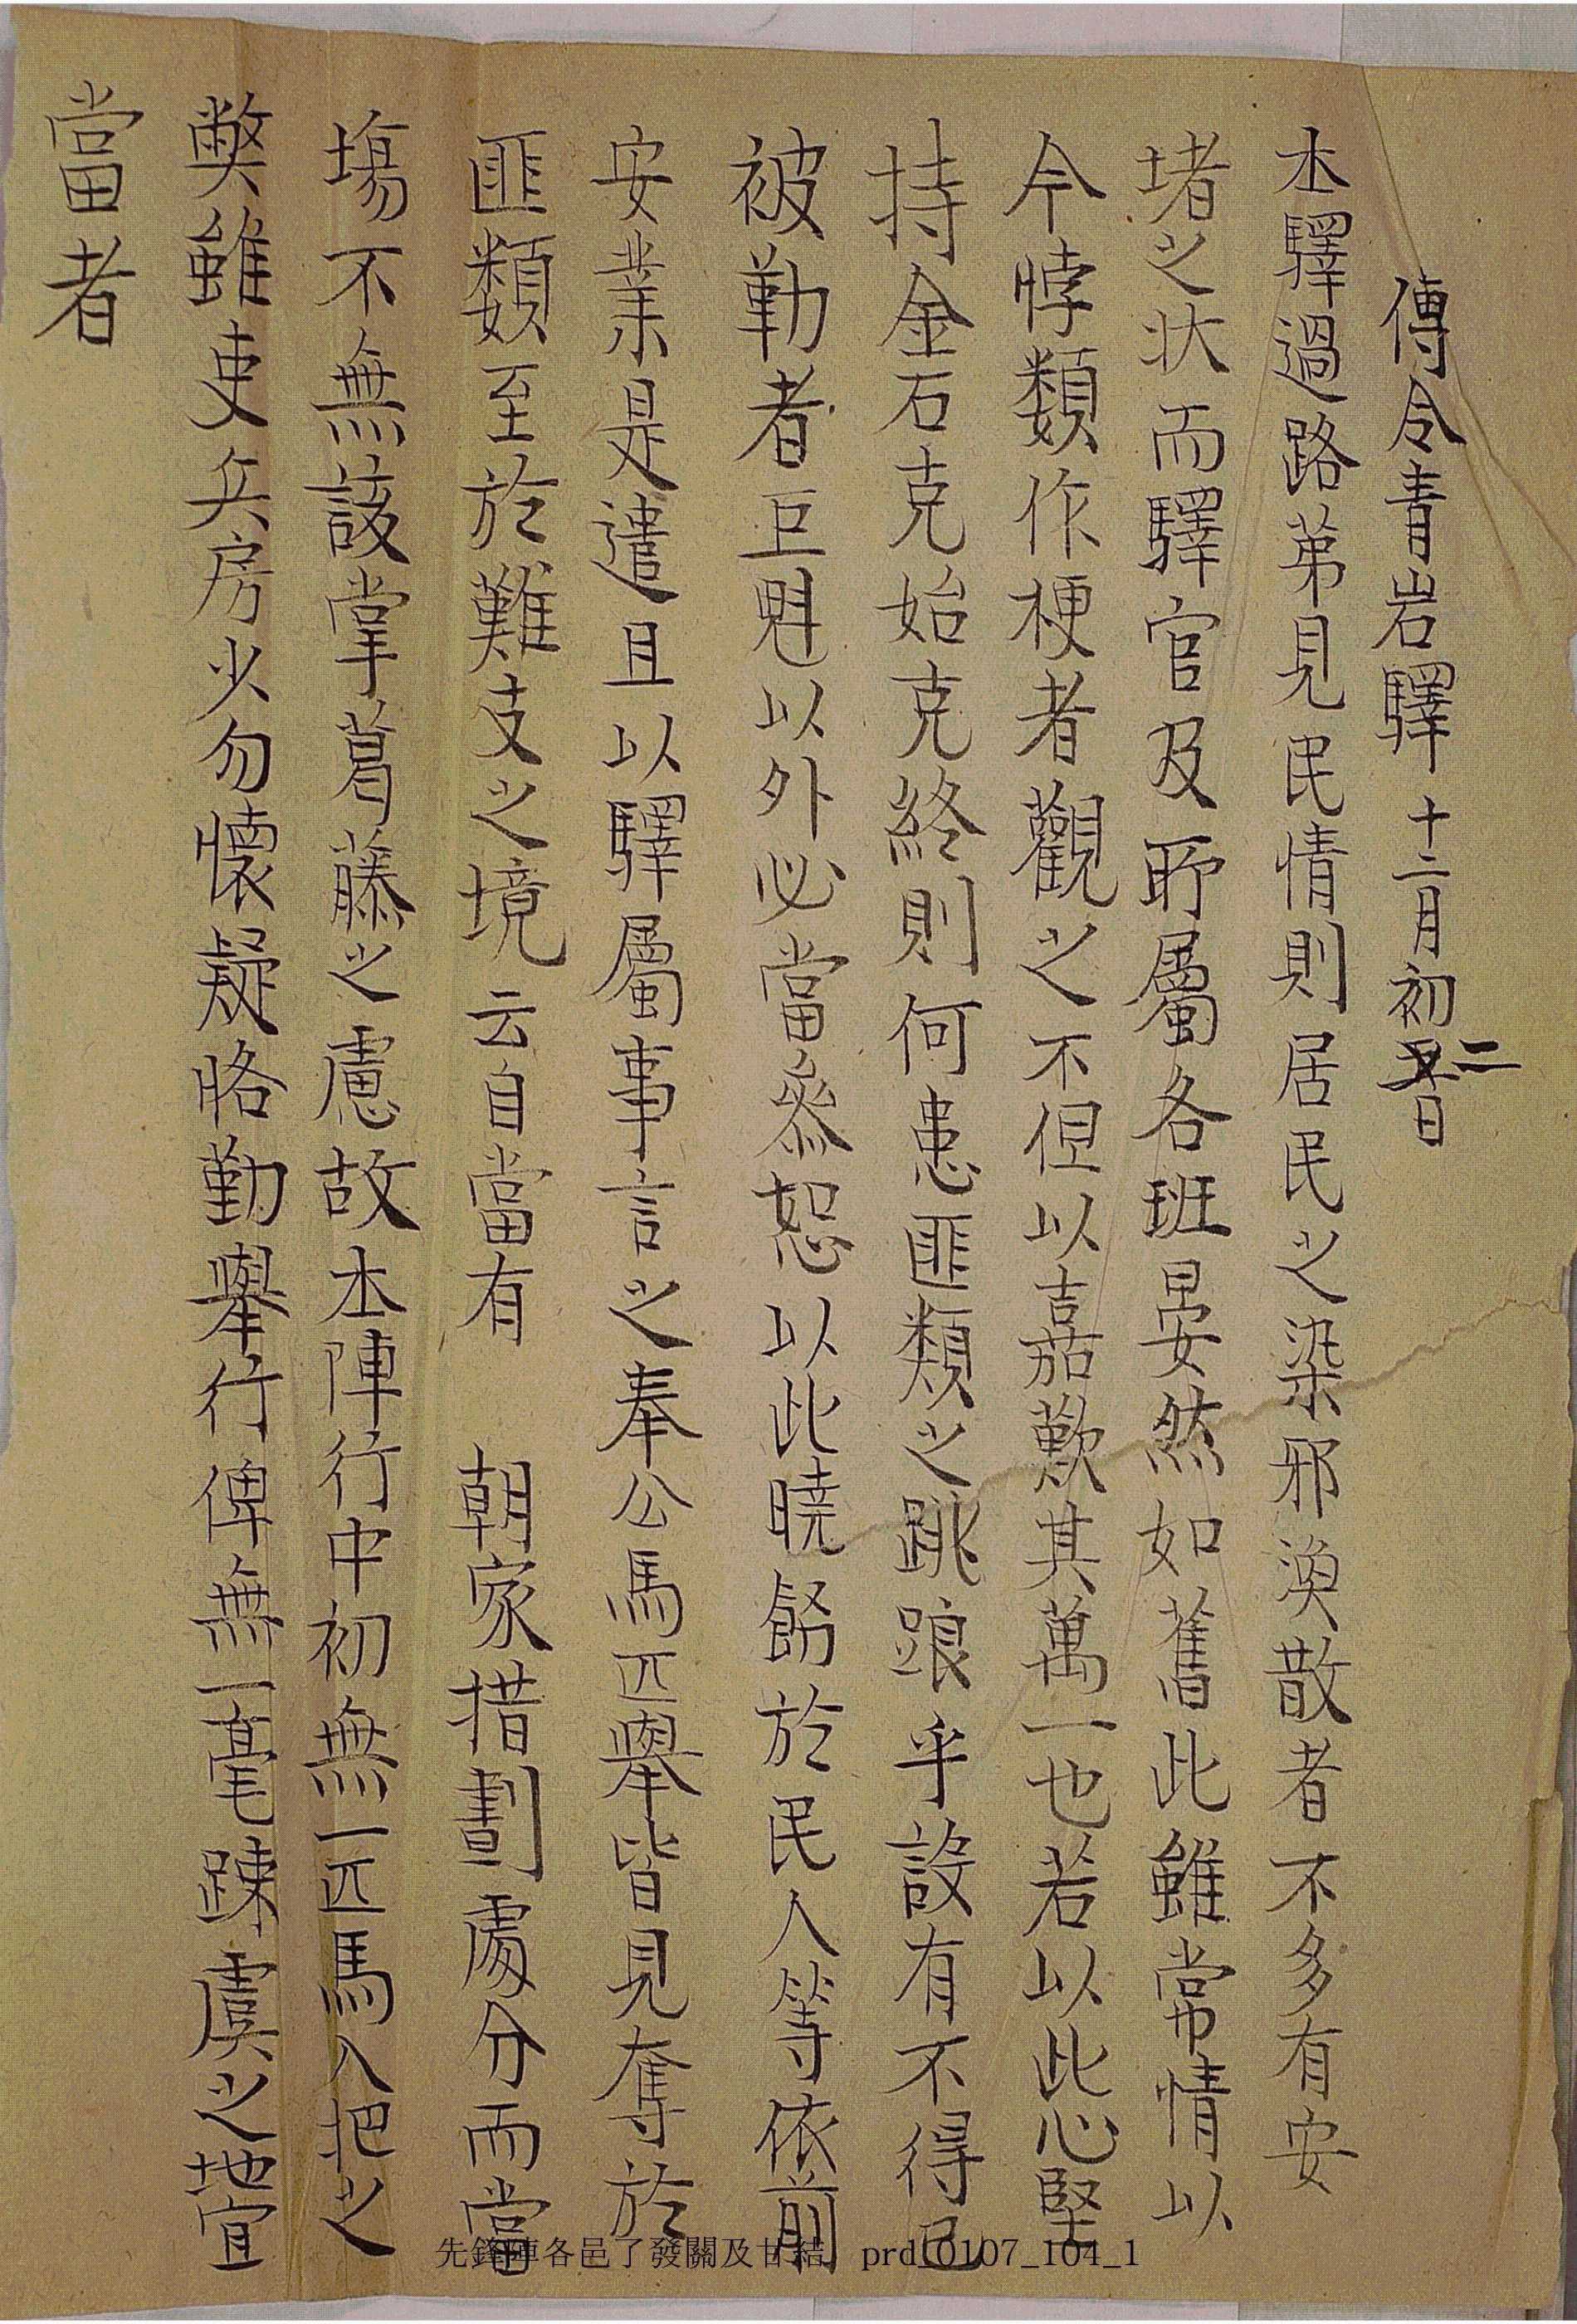 傳令青岩驛 十二月初二日
本驛過路第見民情則居民之染邪渙散者不多有安
堵之状而驛官及所屬各班晏然如舊此雖常情以
今悖類作梗者觀之不但以嘉歎其萬一也若以此心堅
持金石克始克終則何患匪類之跳踉乎設有不得已
被勒者巨魁以外必當參恕以此曉飭於民人等依前
安業是遣且以驛屬事言之奉公馬匹擧皆見奪於
匪類至於難支之境云自當有 朝家措劃處分而當
場不無該掌葛藤之慮故本陣行中初無一匹馬入把之
弊雖吏兵房火勿懷疑恪勤擧行俾無一毫踈虞之地宜
當者
先鋒陣各邑了發關及甘結 prd_0107_104_1